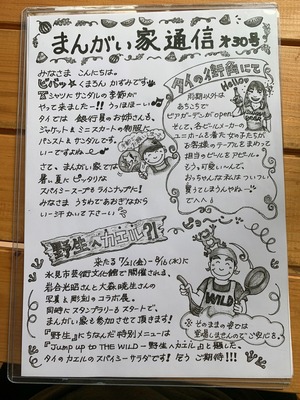 まんがい家通信 第30号
みなさま こんにちは。
ビバッ!! くまちゃん かずみです
Tシャツにサンダルの季節が
やって来ましたー!! うっほほーい
タイでは 銀行員のお姉さんも、
ジャケットとミニスカートの制服に
パンストとサンダルです。
いーですねぇ。
さて、まんがい家では
暑い夏にピッタリの
スパイシースープもラインナップに!
みなさま うちわであおぎながら
いー汗かいて下さーい
タイの街角にて
同期以外は
あちこちで
ビアガーデンがopen
そして、各ビールメーカーの
ユニホームを着た女子たちが
お客様のテーブルとまわって
担当のビールをアピール。
もう、可愛いーくて、
なっちゃんな私は ついつい
買ってしまうんやわー
でへへ
野生へカエル?!
来たる 7/21(金)〜9/6(水)に
氷見市芸術文化館で開催される、
岩合光昭さんと大森暁生さんの
写真と彫刻のコラボ展。
同時にスタンプラリーもスタートで、
まんがい家も参加させて頂きます!
『野生』にちなんだ特別メニューは
『Jump up to THE WILD - 野生へカエル』と題した、
タイのカエルのスパイシーサラダです! どうご期待!!!
WILD
※そのままの姿では
登場しませんのでご安心を。